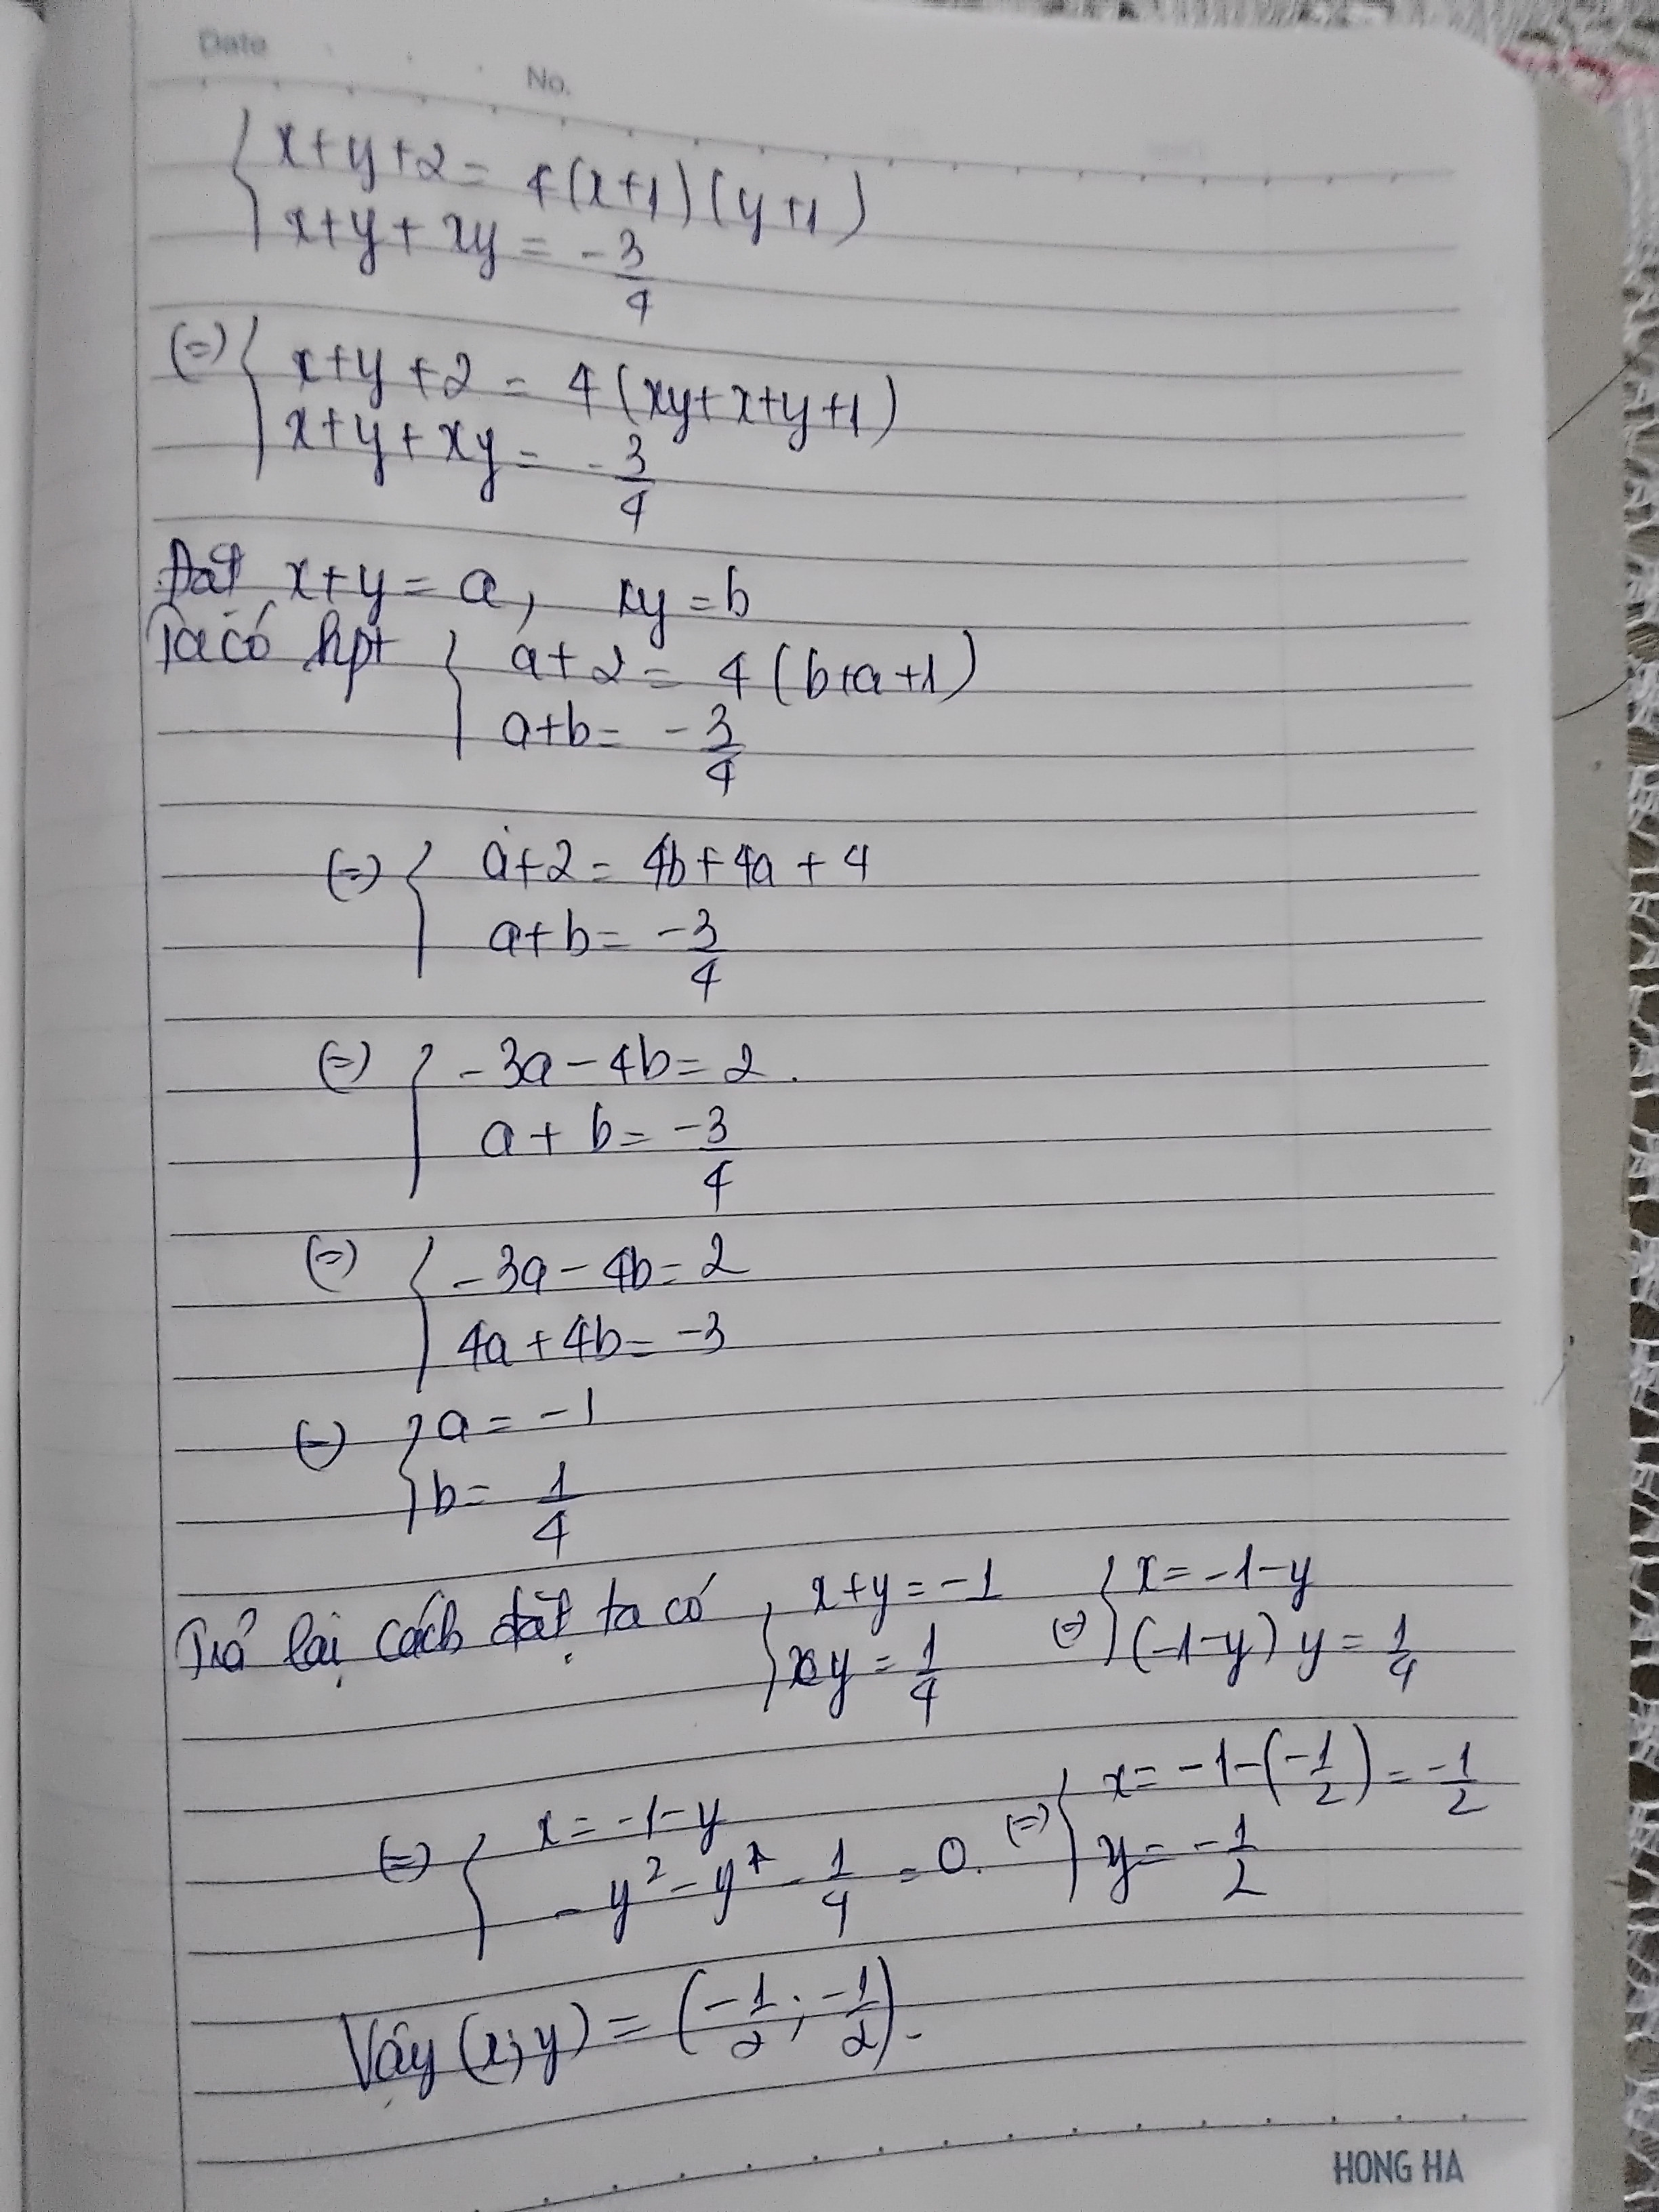 Date
No.
{ x+y+2 = 4(x+1)(y+1)
x+y+xy = -3/4
(=) { x+y+2 = 4(xy+x+y+1)
x+y+xy = -3/4
Đặt x+y = a, xy = b
Ta có hpt { a+2 = 4(b+a+1)
a+b = -3/4
(=) { a+2 = 4b+4a+4
a+b = -3/4
(=) { -3a-4b=2.
a+b = -3/4
(=) { -3a-4b=2
4a+4b=-3
(=) { a = -1
b = 1/4
Trả lại cách đặt ta có { x+y = -1 (=) { x = -1-y
xy = 1/4 (-1-y)y = 1/4
(=) { x = -1-y (=) { x = -1-(-1/2) = -1/2
-y²-y-1/4 = 0. y = -1/2
Vậy (x;y) = (-1/2; -1/2).
HONG HA